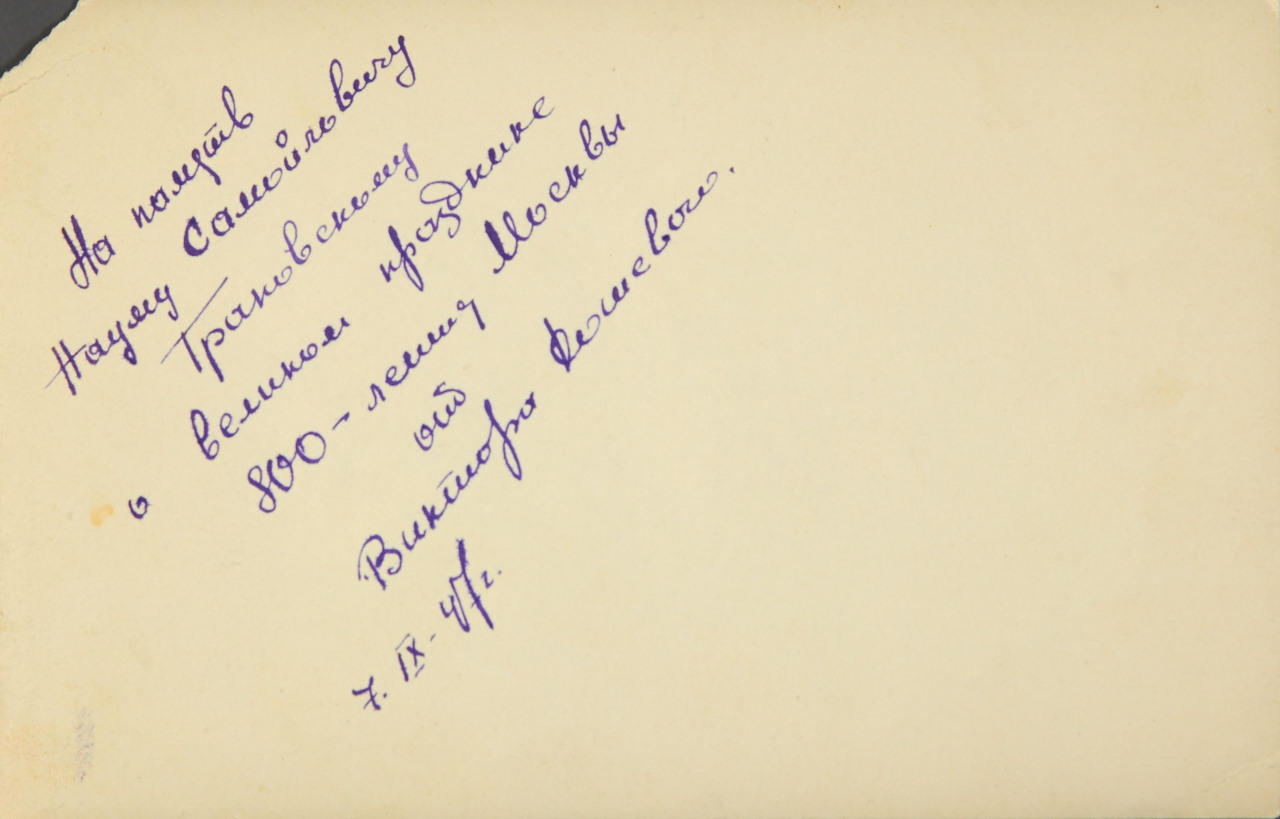 На память
Науму Самойловичу
Грановскому
о великом празднике
800-летия Москвы
от
Виктора Кошевого.
7. IX-47г.